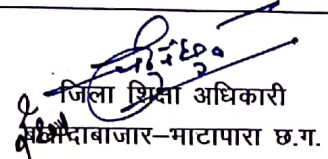 जिला शिक्षा अधिकारी
बलौदाबाजार–भाटापारा छ.ग.